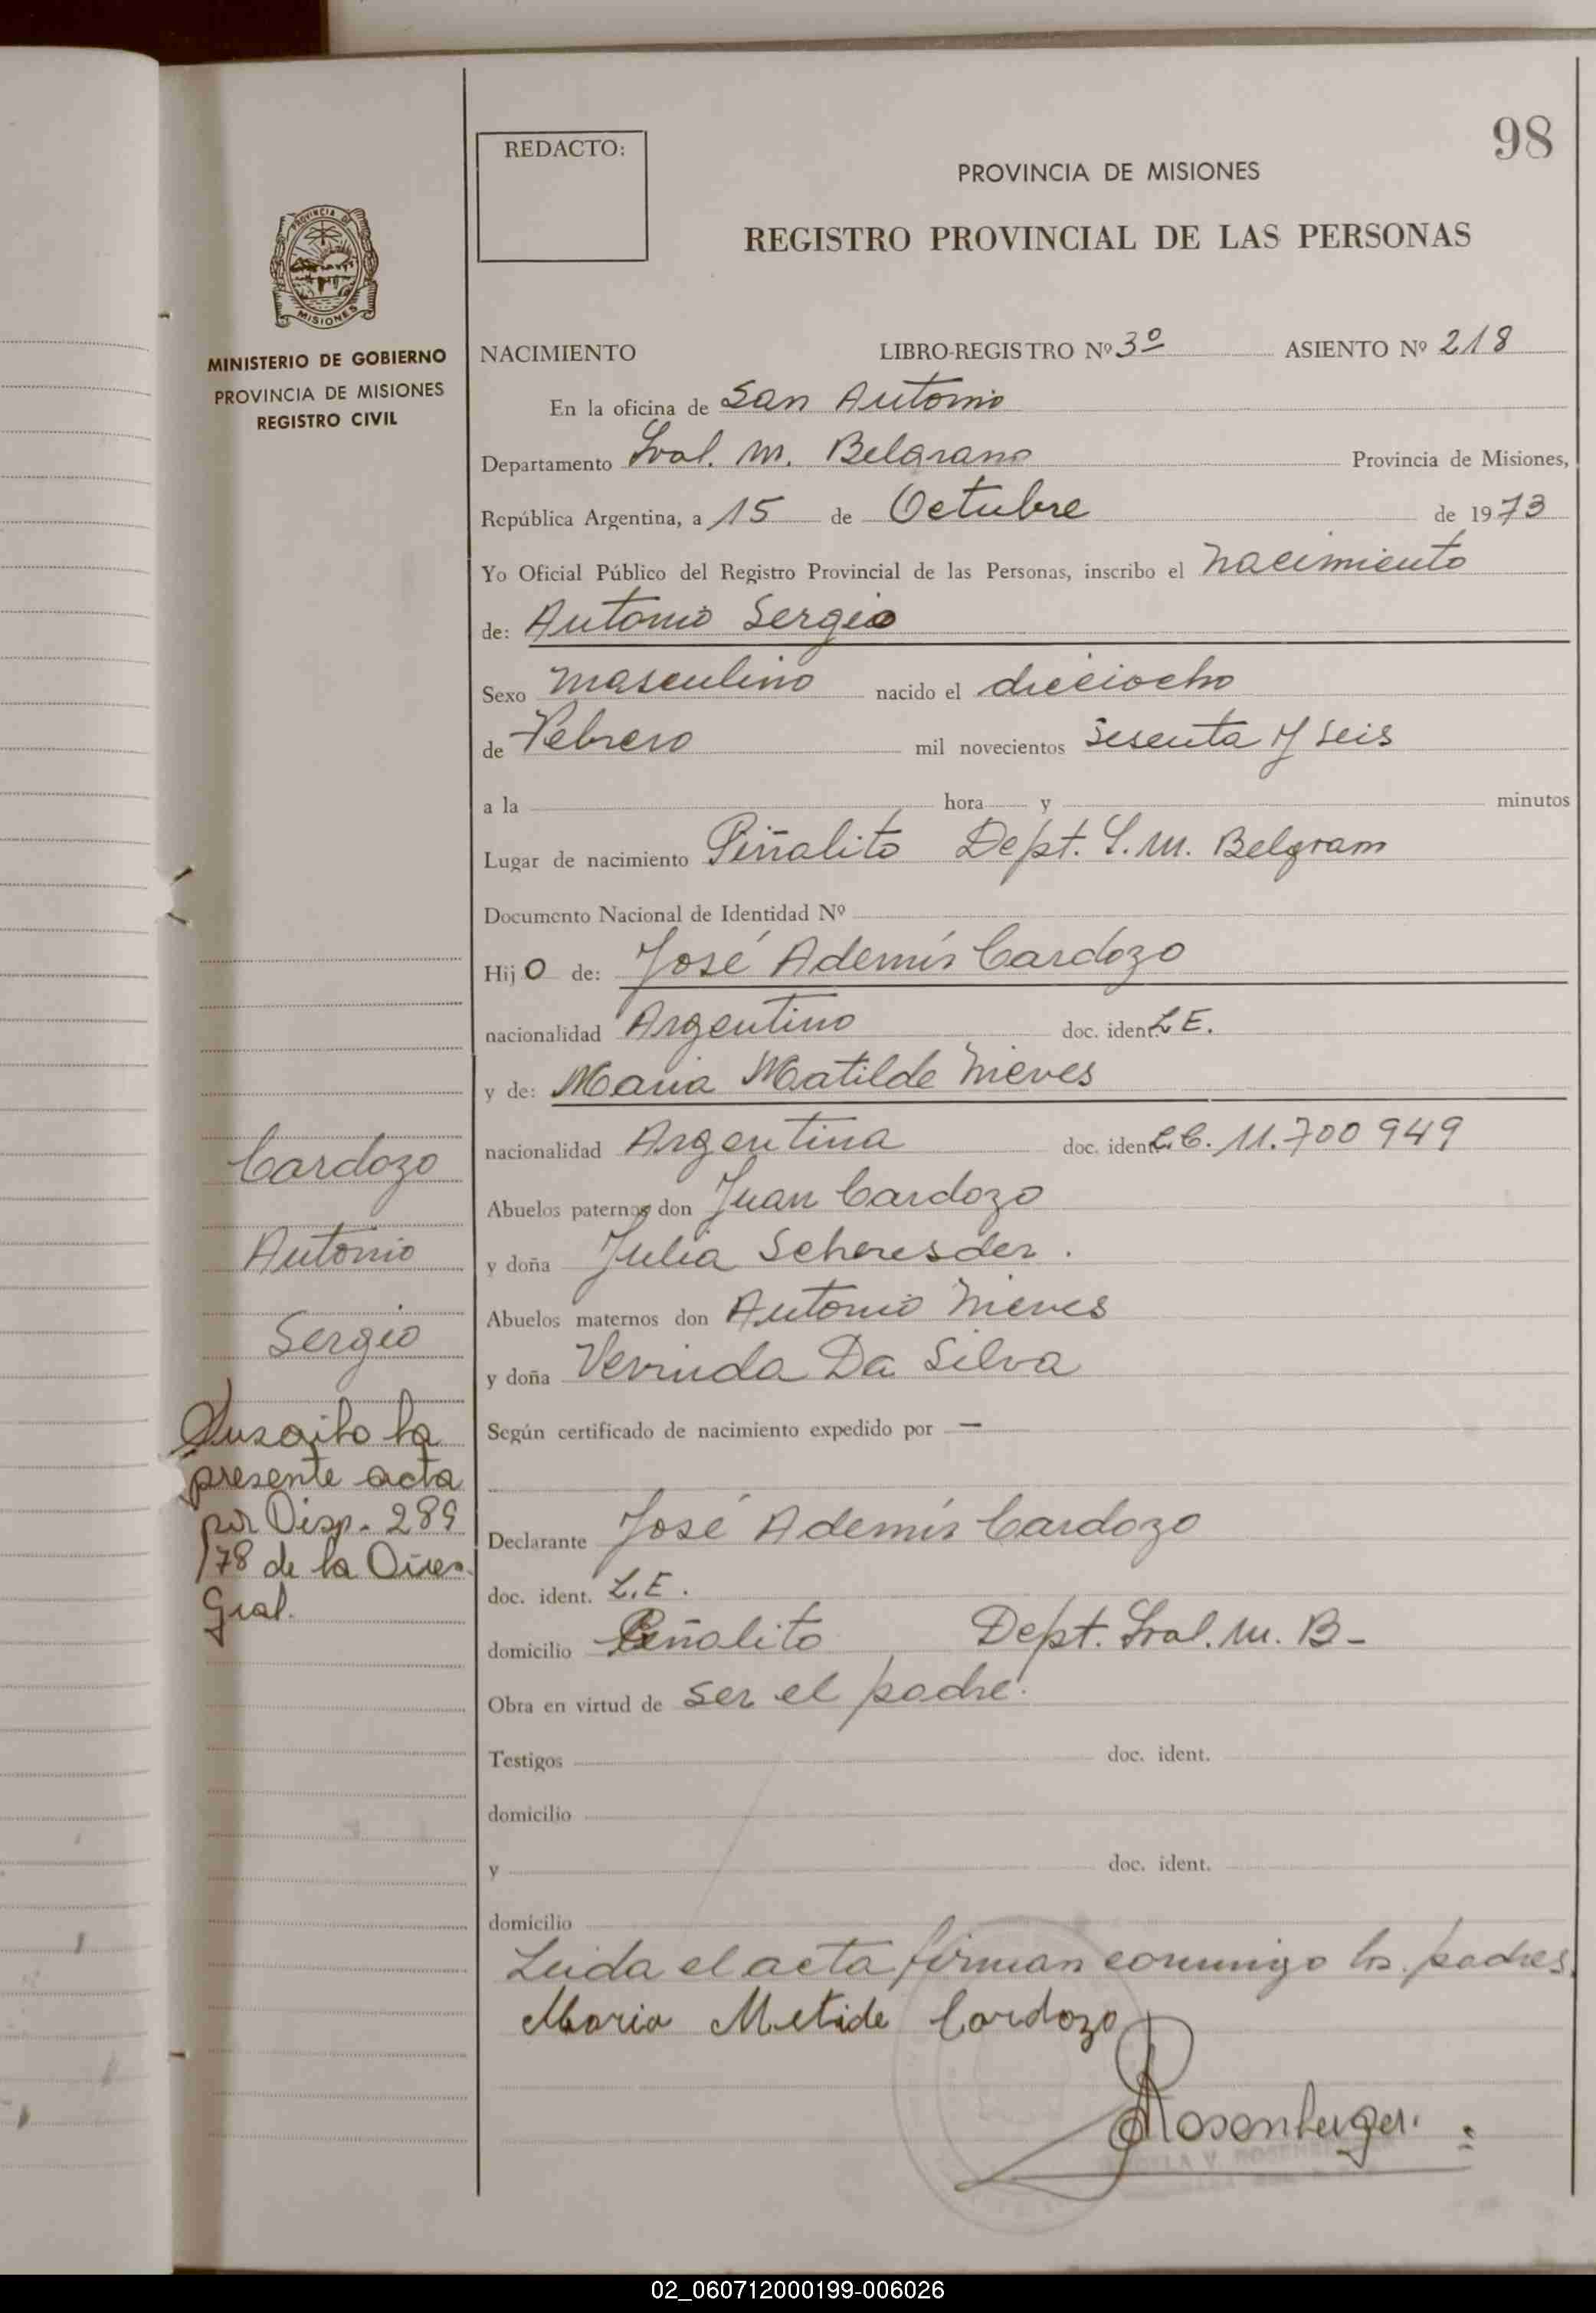 98
REDACTO:
PROVINCIA DE MISIONES
REGISTRO PROVINCIAL DE LAS PERSONAS
PROVINCIA DE
MISIONES
MINISTERIO DE GOBIERNO
PROVINCIA DE MISIONES
REGISTRO CIVIL
NACIMIENTO LIBRO-REGISTRO Nº 3º ASIENTO Nº 218
En la oficina de San Antonio
Departamento Gral. M. Belgrano Provincia de Misiones,
República Argentina, a 15 de Octubre de 1973
Yo Oficial Público del Registro Provincial de las Personas, inscribo el nacimiento
de: Antonio Sergio
Sexo masculino nacido el dieciocho
de Febrero mil novecientos sesenta y seis
a la hora y minutos
Lugar de nacimiento Piñalito Dept. G. M. Belgrano
Documento Nacional de Identidad Nº
Hijo de: José Ademis Cardozo
nacionalidad Argentino doc. ident. L.E.
y de: Maria Matilde Nieves
nacionalidad Argentina doc. ident. L.C. 11.700949
Abuelos paternos don Juan Cardozo
y doña Julia
Abuelos maternos don Antonio Nieves
y doña Da Silva
Según certificado de nacimiento expedido por —
Declarante José Ademis Cardozo
doc. ident. L.E.
domicilio Piñalito Dept. Gral. M. B-
Obra en virtud de ser el padre.
Testigos doc. ident.
domicilio
y doc. ident.
domicilio
Leida el acta firman conmigo los padres.
Maria Metide Cardozo
Rosenberger.
Cardozo
Antonio
Sergio
la
presente acta
por Disp. 289
/78 de la Direc.
Gral.
02_060712000199-006026